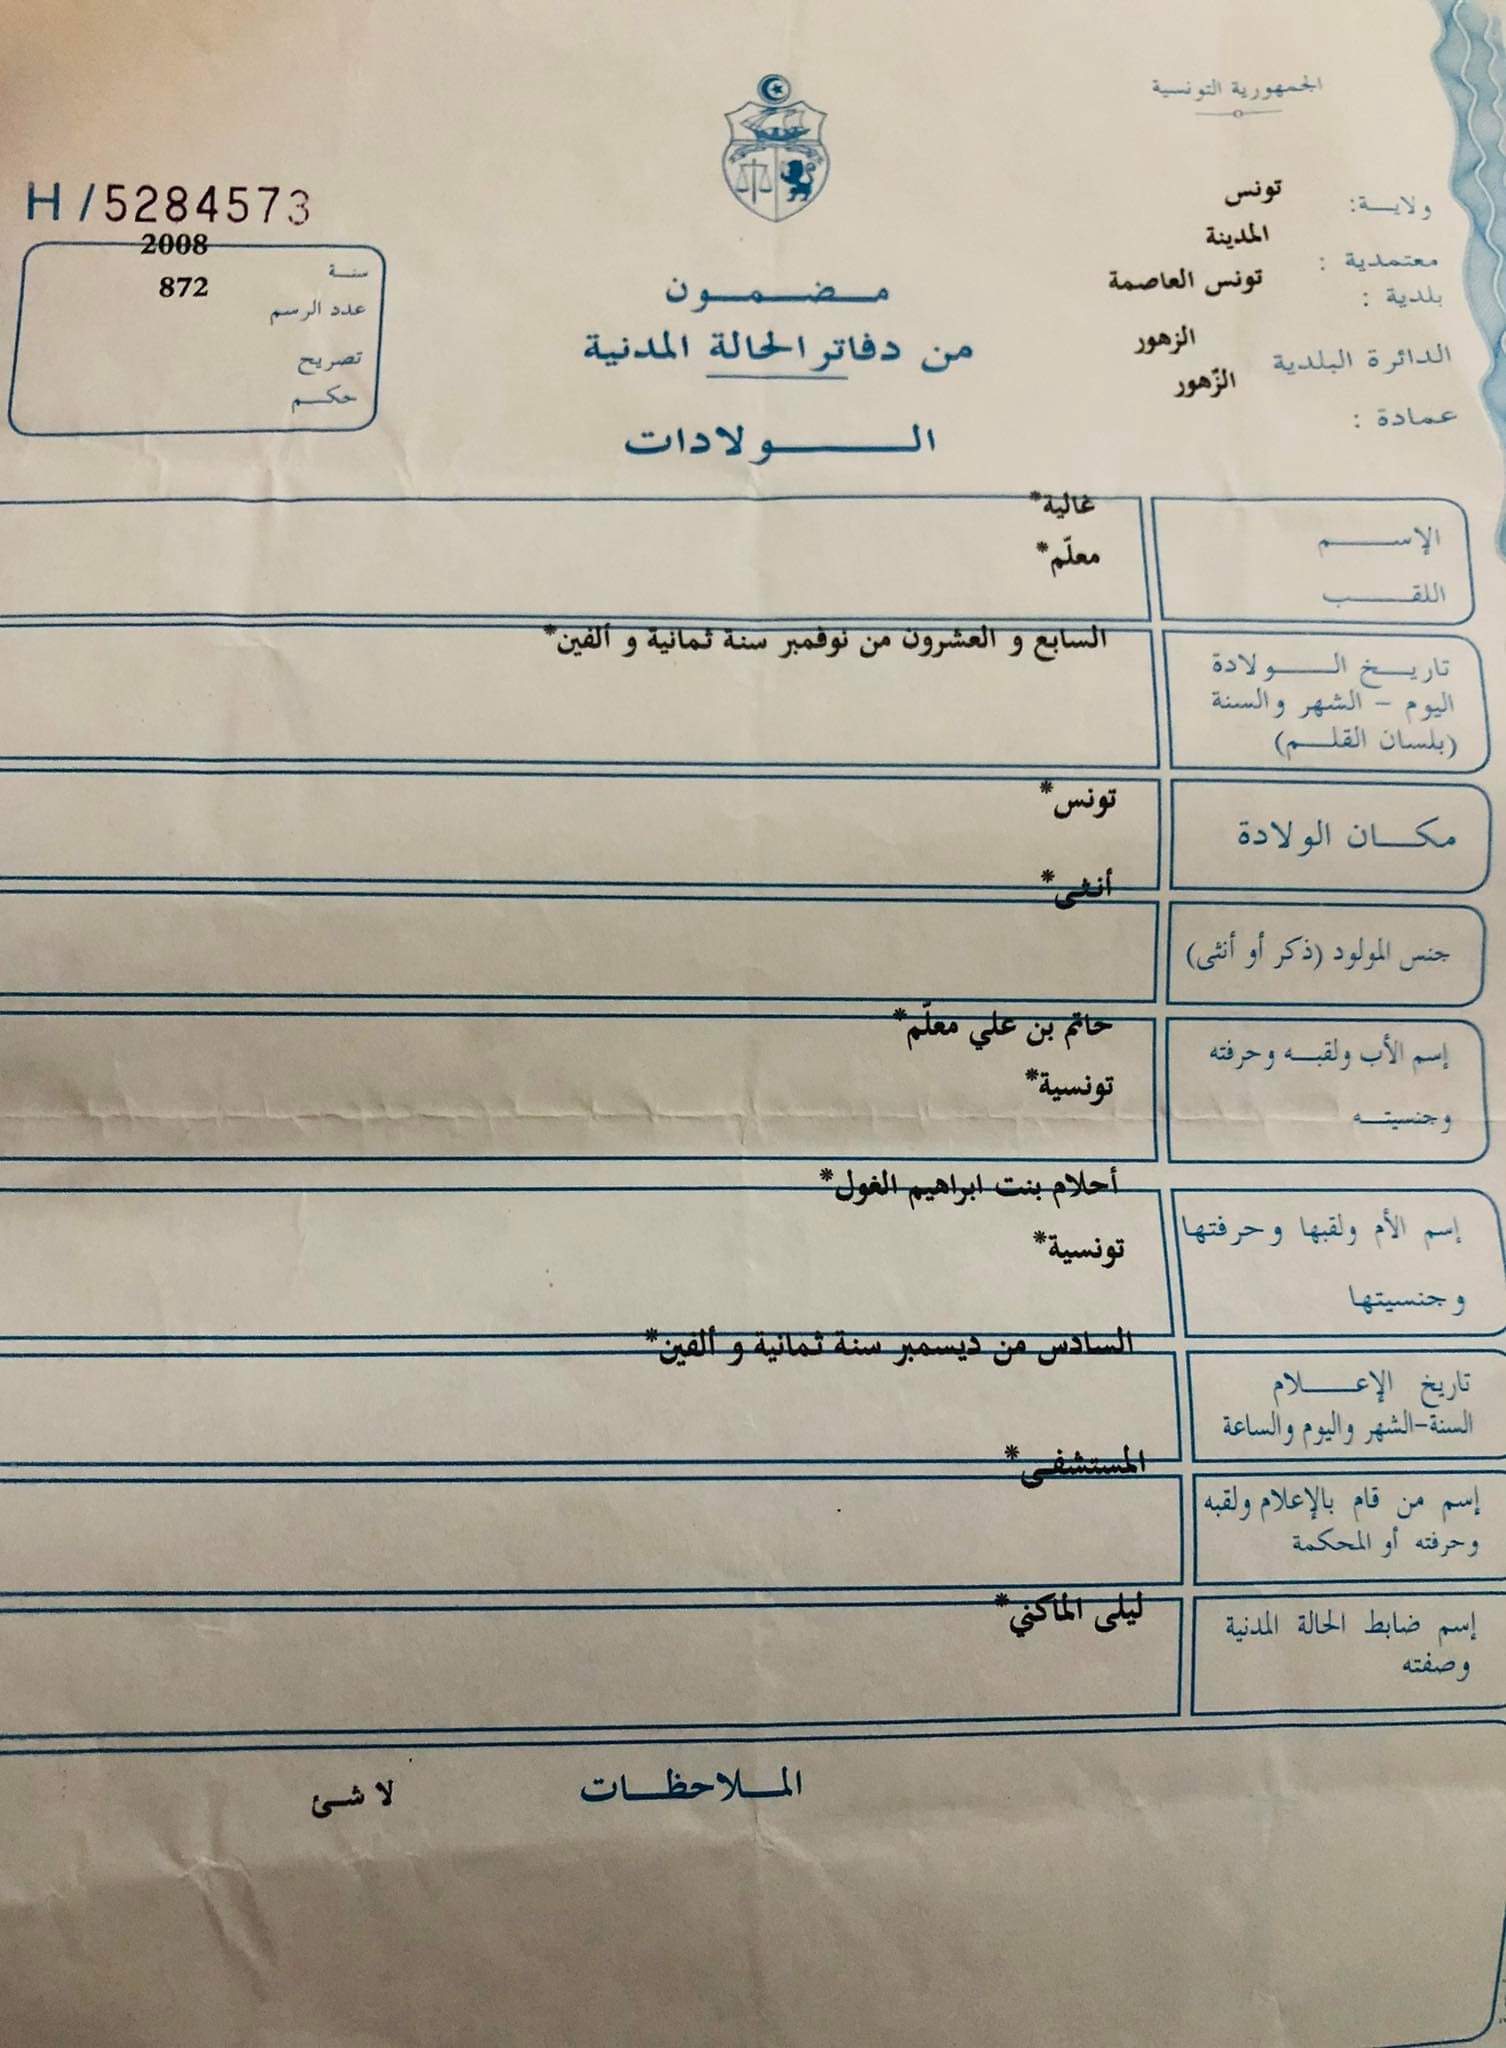 الجمهورية التونسية
ولاية: تونس
معتمدية : المدينة
بلدية : تونس العاصمة
الدائرة البلدية الزهور
عمادة : الزّهور
H/5284573
سنة 2008
عدد الرسم 872
تصريح
حكم
مضمون
من دفاتر الحالة المدنية
الولادات
الإسم غالية*
اللقب معلّم*
تاريخ الولادة السابع و العشرون من نوفمبر سنة ثمانية و ألفين*
اليوم - الشهر والسنة
(بلسان القلم)
مكان الولادة تونس*
جنس المولود (ذكر أو أنثى) أنثى*
إسم الأب ولقبه وحرفته حاتم بن علي معلّم*
وجنسيته تونسية*
إسم الأم ولقبها وحرفتها أحلام بنت ابراهيم الغول*
وجنسيتها تونسية*
تاريخ الإعلام السادس من ديسمبر سنة ثمانية و ألفين*
السنة-الشهر واليوم والساعة
إسم من قام بالإعلام ولقبه المستشفى*
وحرفته أو المحكمة
إسم ضابط الحالة المدنية ليلى الماكني*
وصفته
الملاحظات لا شئ